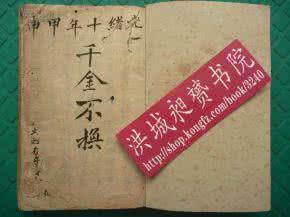 光緒十年甲申
千金不換
洪城昶赟书院
http://shop.kongfz.com/book/3240